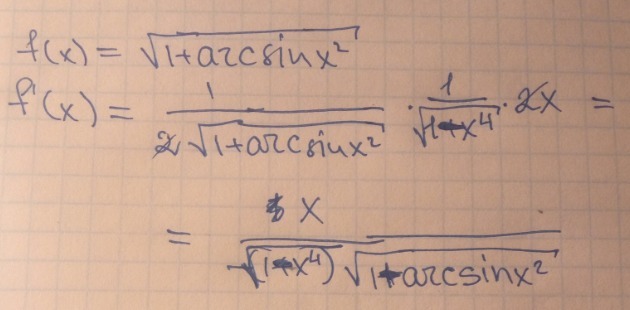 f(x) = √(1+arcsinx²)
f'(x) = 1/(2√(1+arcsinx²)) · 1/√(1-x⁴) · 2x =
= x/(√(1-x⁴) √(1+arcsinx²))